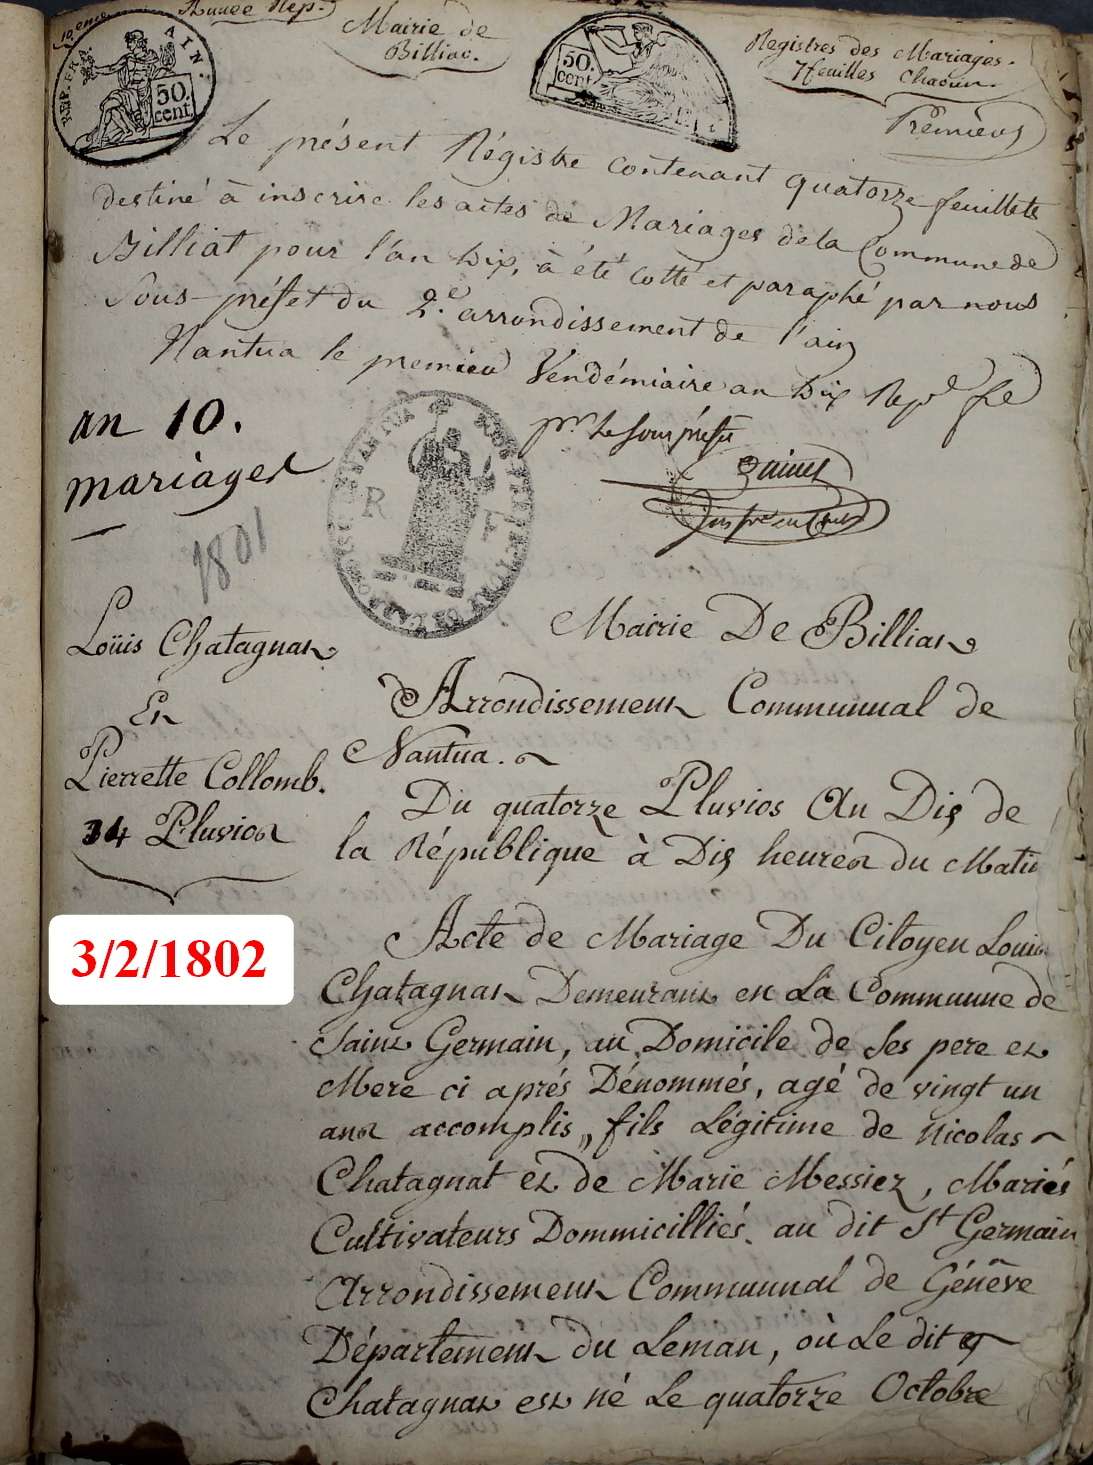 Année Rep.
Mairie de
Billiat.
Registres des Mariages.
7 feuilles chacun.
Premier
REP. FRA.
AIN.
50.
cent.
50.
cent
Le présent Régistre contenant quatorze feuillets
destiné à inscrire les actes de Mariages de la Commune de
Billiat pour l'an dix, à été cotté et paraphé par nous
Sous-préfet du 2.e arrondissement de l'ain
Nantua le premier Vendémiaire an dix Rep.e fse
pr. le sous préfet
an 10.
mariages
1801
R F
Loüis Chatagnat
Et
Pierrette Collomb.
14 Pluvios
Mairie De Billiat
Arrondissement Communnal de
Nantua.
Du quatorze Pluvios An Dix de
la République à Dix heures du Matin
3/2/1802
Acte de Mariage Du Citoyen Louis
Chatagnat Demeurant en La Commune de
Saint Germain, au Domicile de ses pere et
Mere ci aprés Dénommés, agé de vingt un
ans accomplis, fils Légitime de Nicolas
Chatagnat et de Marie Messiez, Mariés
Cultivateurs Dommicilliés au dit St Germain
Arrondissement Communnal de Génêve
Département du Leman, où Le dit
Chatagnat est né Le quatorze Octobre